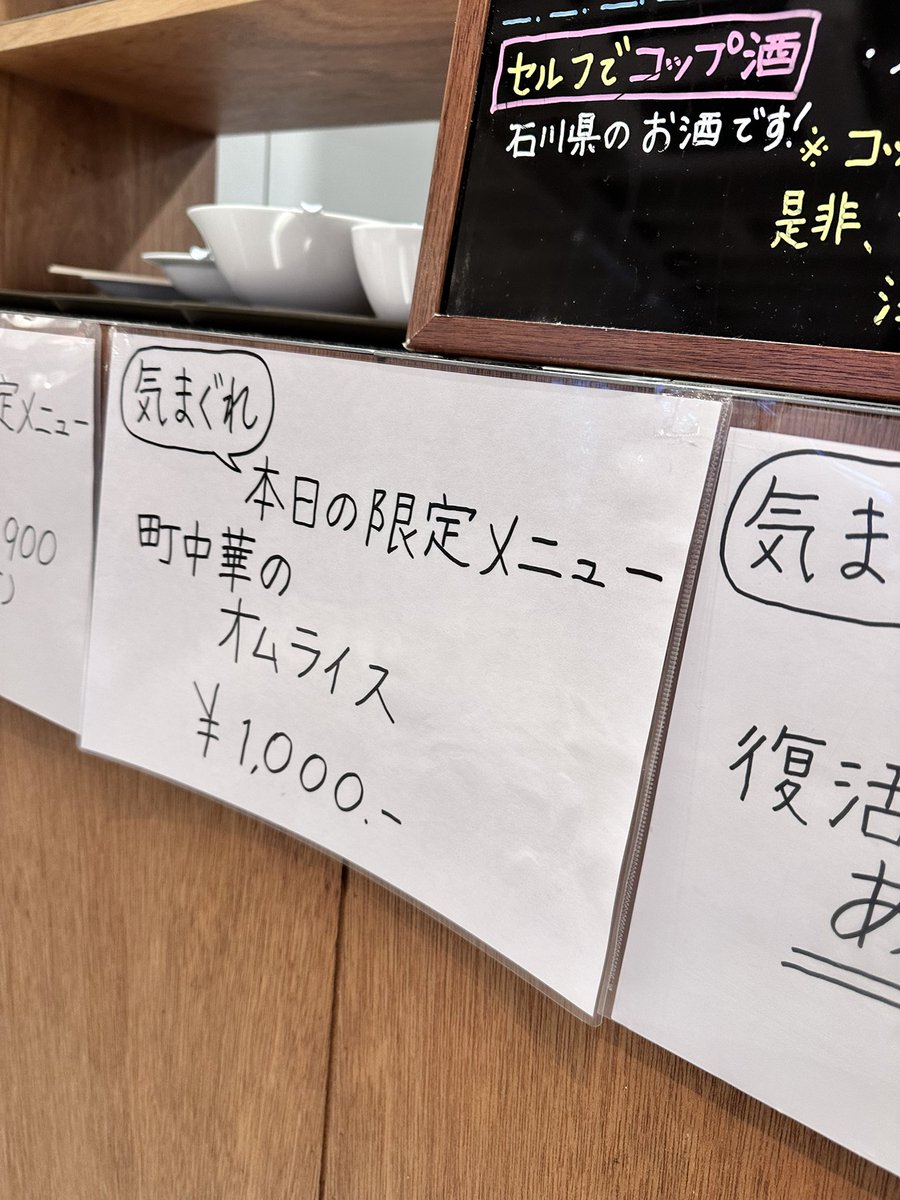 セルフでコップ酒
石川県のお酒です!
※コッ
是非、
定メニュー
900
気まぐれ
本日の限定メニュー
町中華の
オムライス
¥1,000.-
気ま
復活
あ